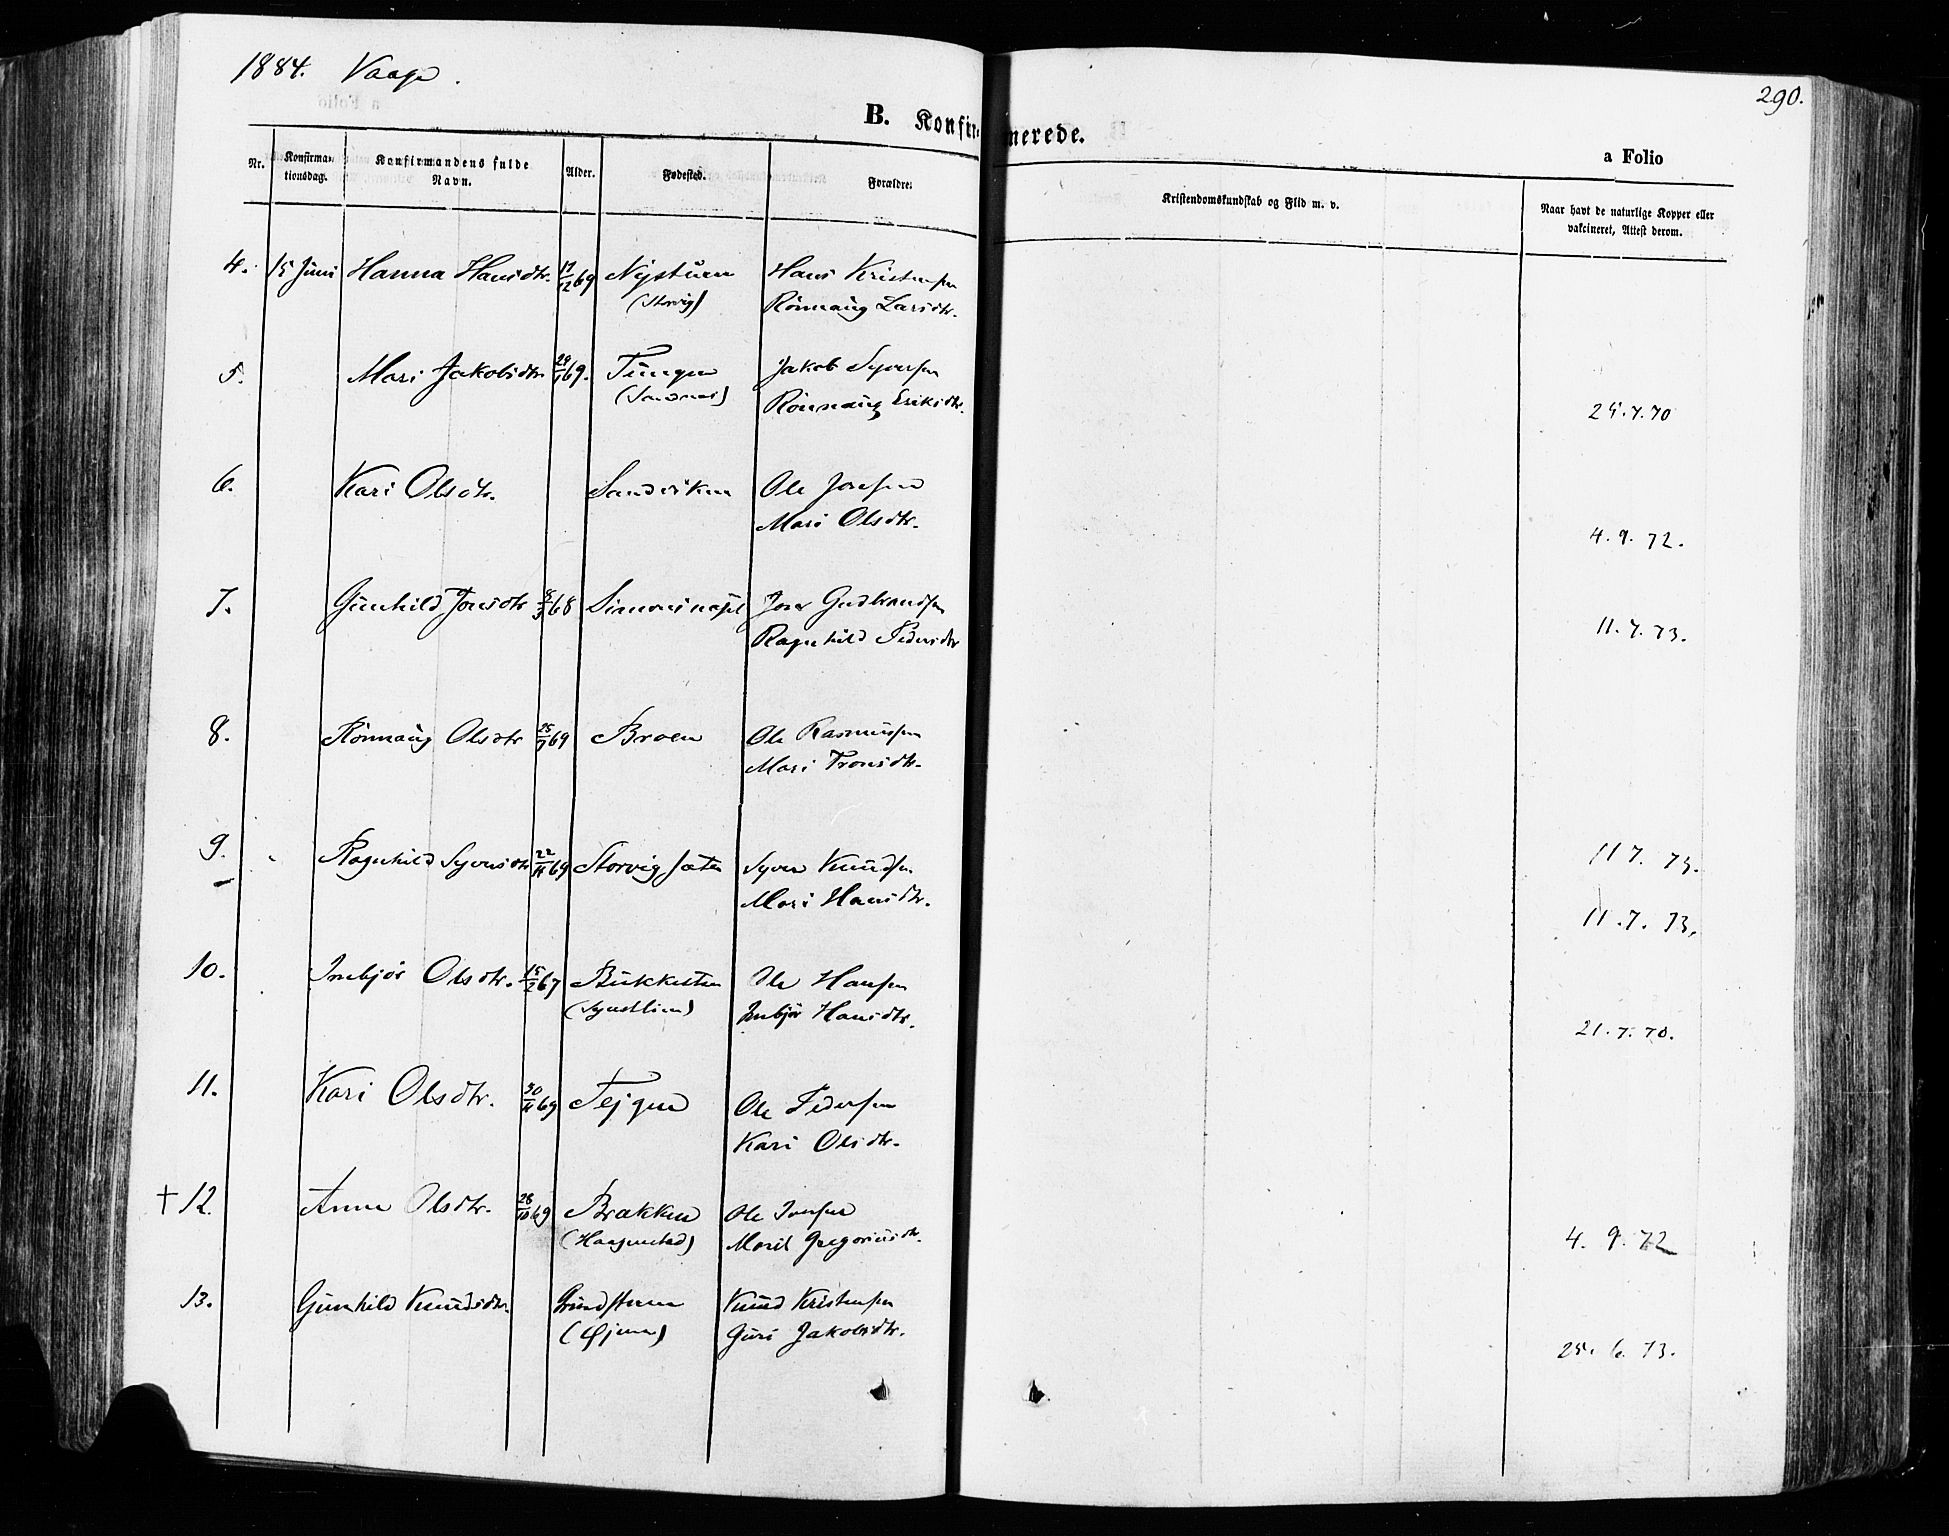 1884. Vaage.
290.
B. Konfirmerede.
a Folio
Nr. Konfirmationsdag. Konfirmandens fulde Navn. Alder. Fødested. Forældre: Kristendomskundskab og Flid m. v. Naar havt de naturlige Kopper eller vakcineret, Attest derom.
4. 15 Juni Hanna Hansdtr. 17/12 69 Nystuen Hans Kristensen
(Storvig) Rönnaug Larsdtr.
5. Mari Jakobsdtr 29/1 69. Jakob Syversen
Rönnaug Eriksdtr.
25.7.70
6. Kari Olsdtr. Sandviken Ole
Mari Olsdtr.
4.9.72.
7. Gunhild Jonsdtr 8/3 68 Gudbrandsen
Ragnhild Pedersdtr
11.7.73.
8. Rönnaug Olsdtr 25/7 69 Broen Ole Rasmussen
Mari Tronsdtr.
9. Ragnhild Syversdtr 22/11 69 Storvigsæter Syver Knudsen
11 7. 73.
Mari Hansdtr.
11.7.73.
10. Imbjör Olsdtr. 15/2 67 Ole Hansen
Imbjör Hansdtr.
21.7.70.
11. Kari Olsdtr. 30/11 69 Ole Pedersen
Kari Olsdtr.
† 12. Anne Olsdtr. 28/10 69 Brækken Ole Iversen
(Haagenstad) Marit Gregoriusdtr.
4. 9. 72
13. Gunhild Knudsdtr. Knud Kristensen
Guri Jakobsdtr.
25. 6. 73.